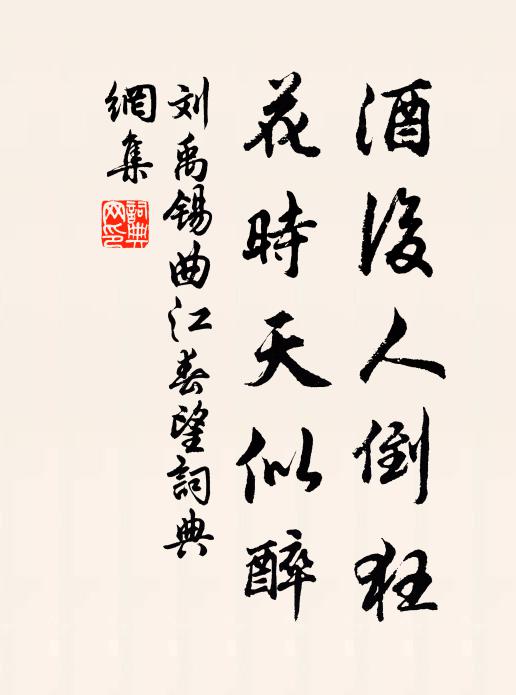 酒後人倒狂
花時天似醉
刘禹锡曲江春望詞典
網集
詞典
网印